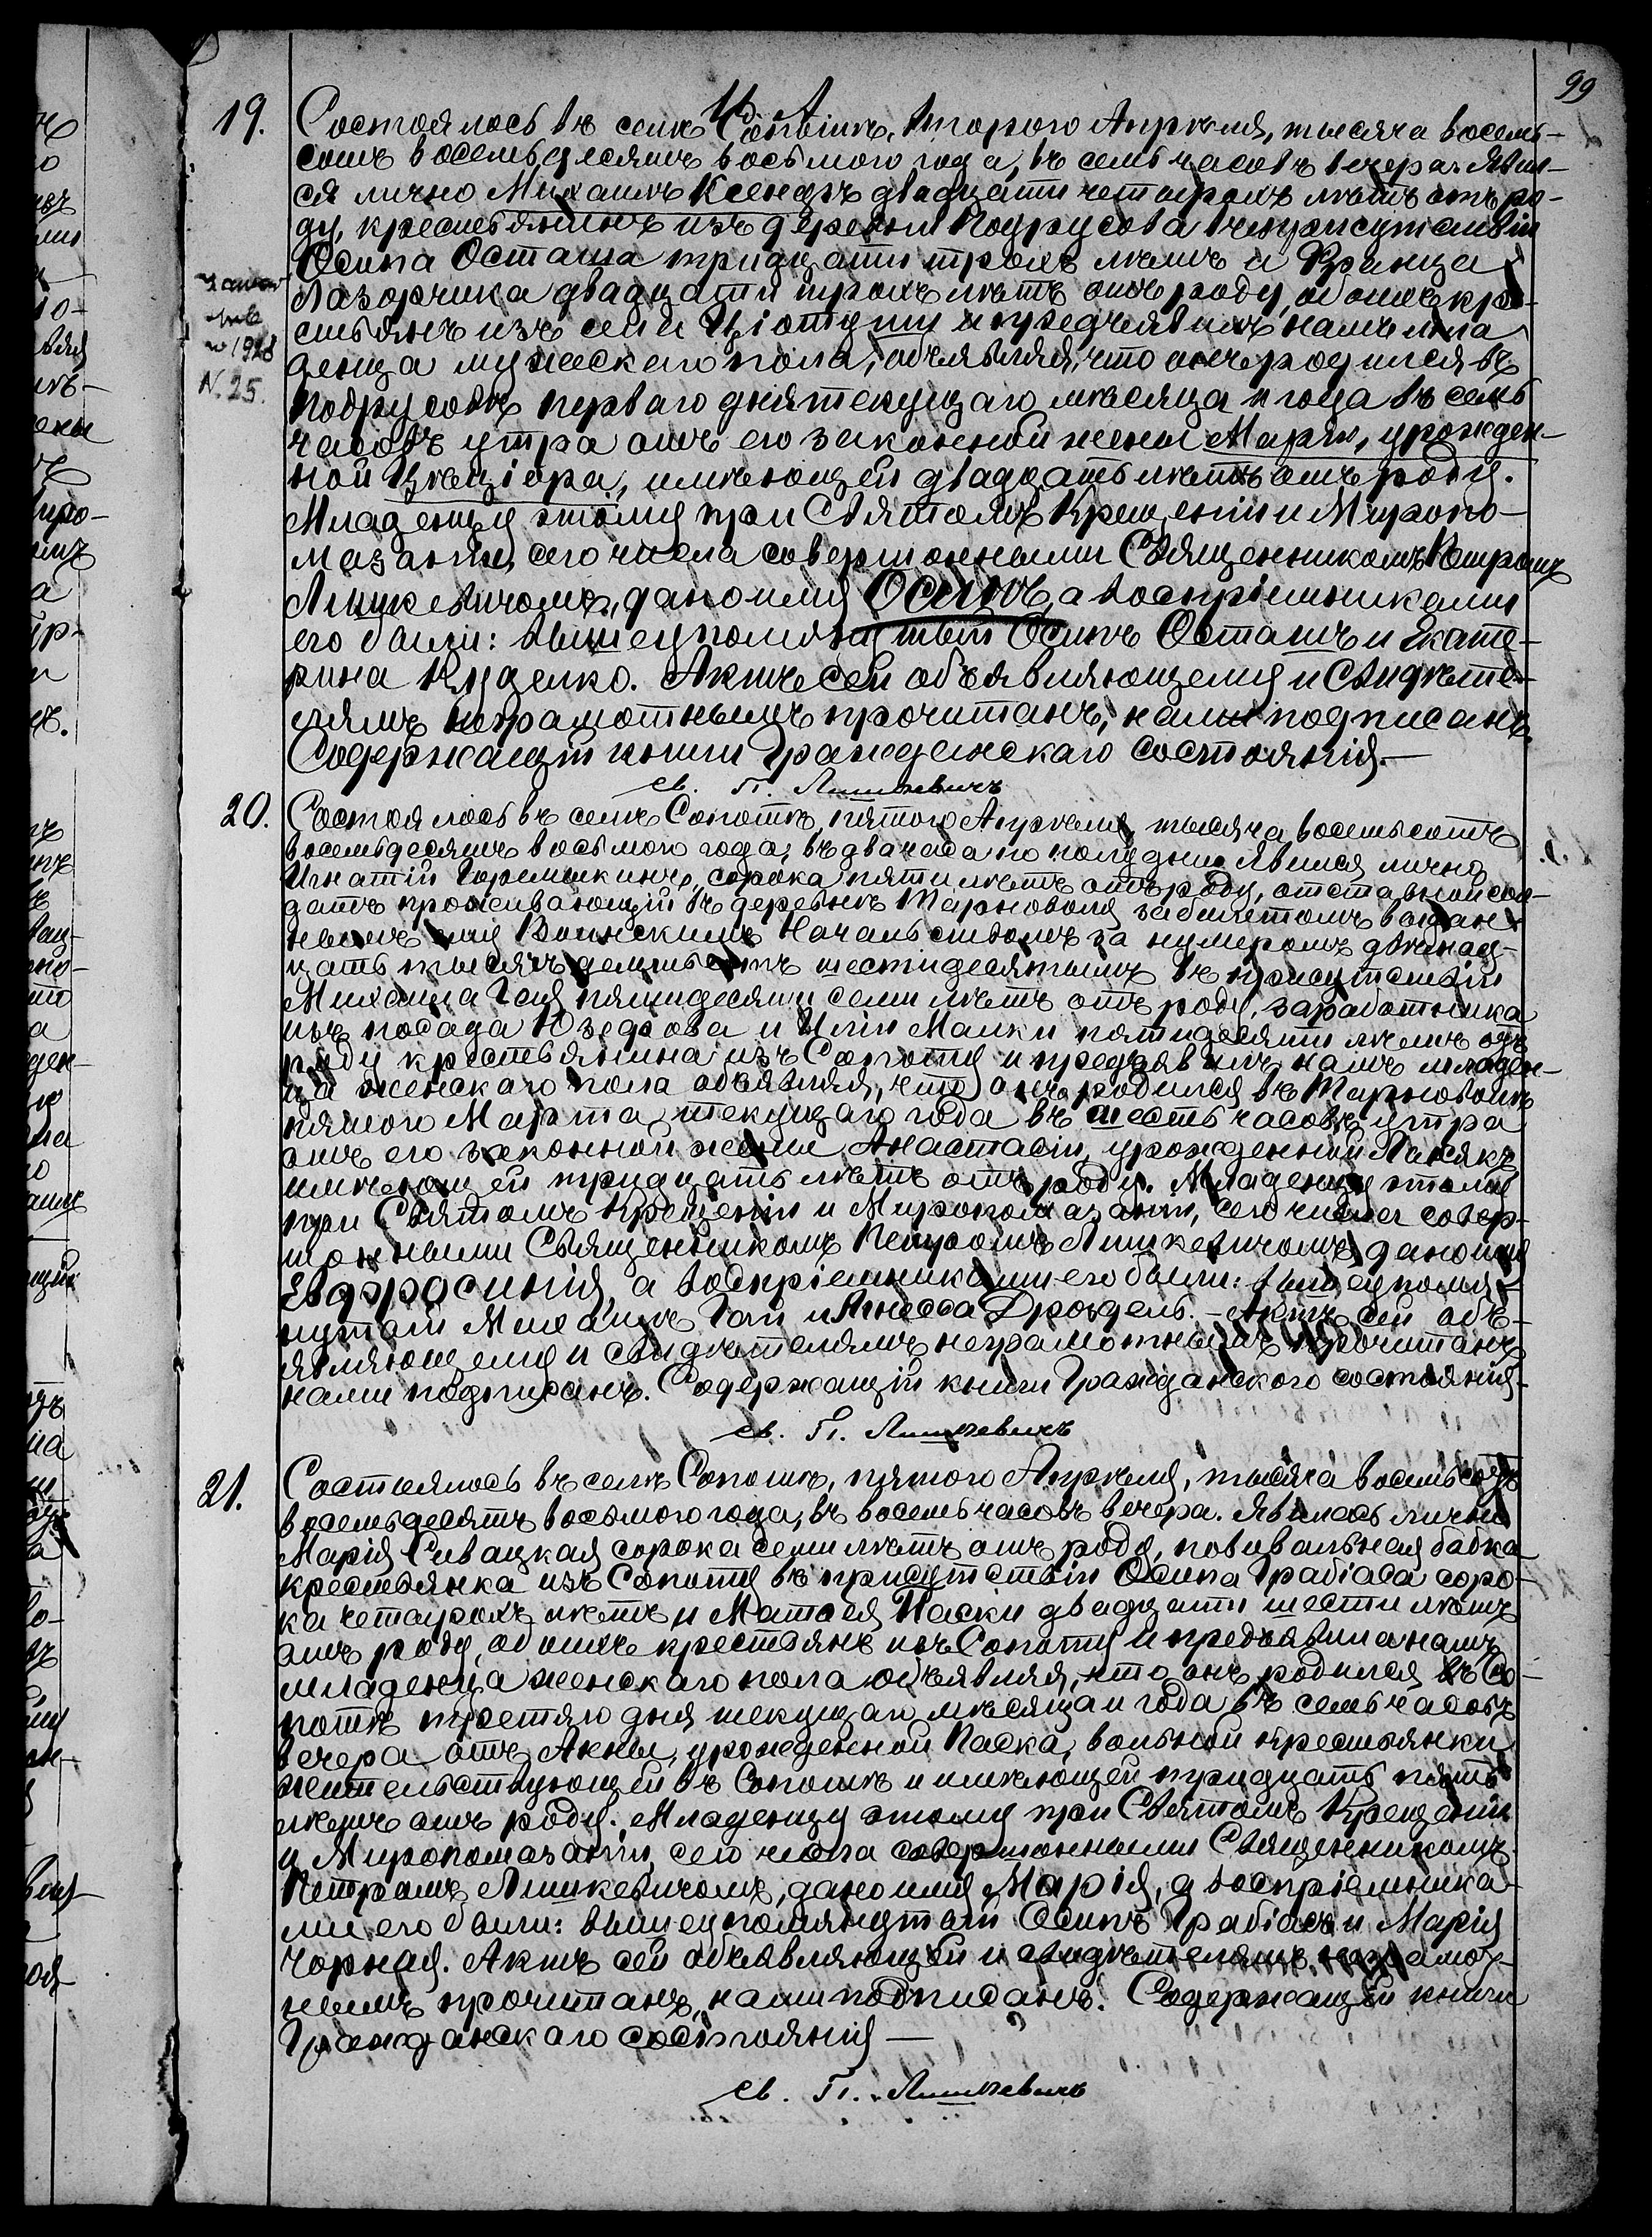 99
19. Состоялось въ селѣ Сопотѣ, второго Апрѣля, тысяча восемь-
сотъ восемьдесятъ восьмого года, въ семь часовъ вечера. Явил-
ся лично Михаилъ Ксендзъ двадцати четырехъ лѣтъ отъ ро-
ду, крестьянинъ изъ деревни Подрусова въ присутствіи
Осипа Осташа тридцати трохъ лѣтъ и Франца
Лазорчика двадцати трохъ лѣтъ отъ роду, обоихъ кре-
стьянъ изъ села и предъявилъ намъ мла
денца мужескаго пола, объявляя, что онъ родился въ
Подрусовѣ перваго дня текущаго мѣсяца и года въ семь
часовъ утра отъ его законной жены Маріи, урожден-
ной имѣющей двадцать лѣтъ отъ роду.
Младенцу этому при Святомъ Крещеніи и Миропо-
мазаніи, сего числа совершонными Священникомъ Петромъ
Лишкевичомъ, дано имя Осипъ, а воспріемниками
его были: вышеупомянутый Осипъ Осташъ и Екате-
рина Кудзелко. Актъ сей объявляющему и свидѣте-
лямъ неграмотнымъ прочитанъ, нами подписанъ.
Содержащій книги Гражданскаго состоянія.—
N. 25.
св. П. Лишкевичъ
20. Состоялось въ селѣ Сопотѣ, пятого Апрѣля, тысяча восемьсотъ
восемьдесятъ восьмого года, въ два часа по полудни. Явился лично
Игнатій сорока пяти лѣтъ отъ роду, отставной сол-
датъ проживающій въ деревнѣ Тарноволя за билетомъ выдан-
нымъ ему Воинскимъ Начальствомъ за нумеромъ двѣнад-
цать тысячъ шестидесятымъ въ присутствіи
Михаила Гая пятидесяти семи лѣтъ отъ роду, заработника
изъ посада Юзефова и Иліи Малки пятидесяти лѣтъ отъ
роду крестьянина изъ Сопота и предъявилъ намъ младен-
ца женскаго пола объявляя, что онъ родился въ Тарноволѣ
пятого Марта текущаго года въ шесть часовъ утра
отъ его законной жены Анастасіи, урожденной
имѣющей тридцать лѣтъ отъ роду. Младенцу этому
при Святомъ Крещеніи и Миропомазаніи, сего числа совер-
шонными Священникомъ Петромъ Лишкевичомъ, дано имя
Евдфросинія, а воспріемниками его были: вышеупомя-
нутый Михаилъ Гай и Агнесса Дроздель. - Актъ сей объ-
являющему и свидѣтелямъ неграмотнымъ прочитанъ
нами подписанъ. Содержащій книги Гражданского состоянія.
св. П. Лишкевичъ
21. Состоялось въ селѣ Сопотѣ, пятого Апрѣля, тысяча восемьсотъ
восемьдесятъ восьмого года, въ восемь часовъ вечера. Явилась лично
Марія Сивацкая сорока семи лѣтъ отъ роду, повивальная бабка
крестьянка изъ Сопота въ присутствіи Осипа Грабіаса соро-
ка четырохъ лѣтъ и Матвея Паски двадцати шести лѣтъ
отъ роду, обоихъ крестьянъ изъ Сопота и предъявила намъ
младенца женскаго пола объявляя, что онъ родился въ Со-
потѣ третяго дня текущаго мѣсяца и года въ семь часовъ
вечера отъ Анны, урожденной Паска, вольной крестьянки,
жительствующей въ Сопотѣ и имѣющей тридцать пять
лѣтъ отъ роду. Младенцу этому при Святомъ Крещеніи
и Миропомазаніи, сего числа совершонными Священникомъ
Петромъ Лишкевичомъ, дано имя Марія, а воспріемника-
ми его были: вышеупомянутый Осипъ Грабіасъ и Марія
Чорная. Актъ сей объявляющей и свидѣтелямъ неграмот-
нымъ прочитанъ, нами подписанъ. Содержащій книги
Гражданскаго состоянія —
св. П. Лишкевичъ